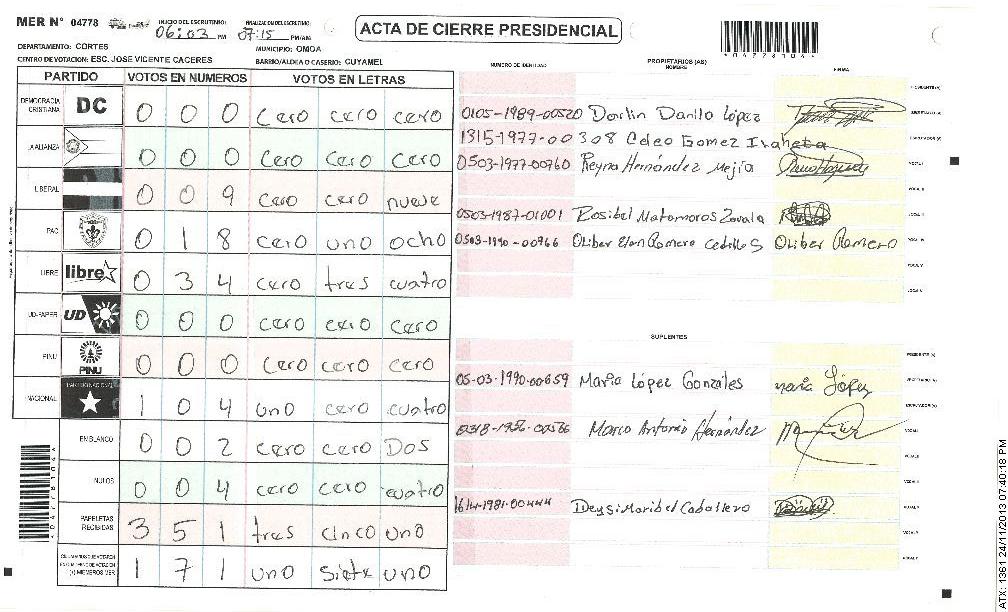 MER N° 04778 INICIO DEL ESCRUTINIO: 06:03 PM FINALIZACION DEL ESCRUTINIO: 07:15 PM/AM
ACTA DE CIERRE PRESIDENCIAL
*04778104*
DEPARTAMENTO: CORTES MUNICIPIO: OMOA
CENTRO DE VOTACION: ESC. JOSE VICENTE CACERES BARRIO/ALDEA O CASERIO: CUYAMEL
PARTIDO VOTOS EN NUMEROS VOTOS EN LETRAS
DEMOCRACIA CRISTIANA DC 0 0 0 cero cero cero
LA ALIANZA 0 0 0 cero cero cero
LIBERAL 0 0 9 cero cero nueve
PAC 0 1 8 cero uno ocho
LIBRE libre 0 3 4 cero tres cuatro
UD-FAPER UD 0 0 0 cero cero cero
PINU PINU 0 0 0 cero cero cero
NACIONAL PARTIDO NACIONAL 1 0 4 uno cero cuatro
EN BLANCO 0 0 2 cero cero Dos
NULOS 0 0 4 cero cero cuatro
PAPELETAS RECIBIDAS 3 5 1 tres cinco uno
1 7 1 uno siete uno
NUMERO DE IDENTIDAD PROPIETARIOS (AS) NOMBRE FIRMA
0105-1989-00520 Darlin Danilo López
1315-1977-00308 Celeo Gomez
0503-1977-00760 Reyna Hernández Mejía
0503-1987-01001 Rosibel Matamoros Zavala
0503-1990-00766 Oliber Elan Romero Cedillos Oliber Romero
SUPLENTES
05-03-1990-00659 Maria López Gonzales maria López
Marco Antonio Hernández
1614-1981-00444 Deysi Maribel Caballero
ATX: 1361 24/11/2013 07:40:18 PM